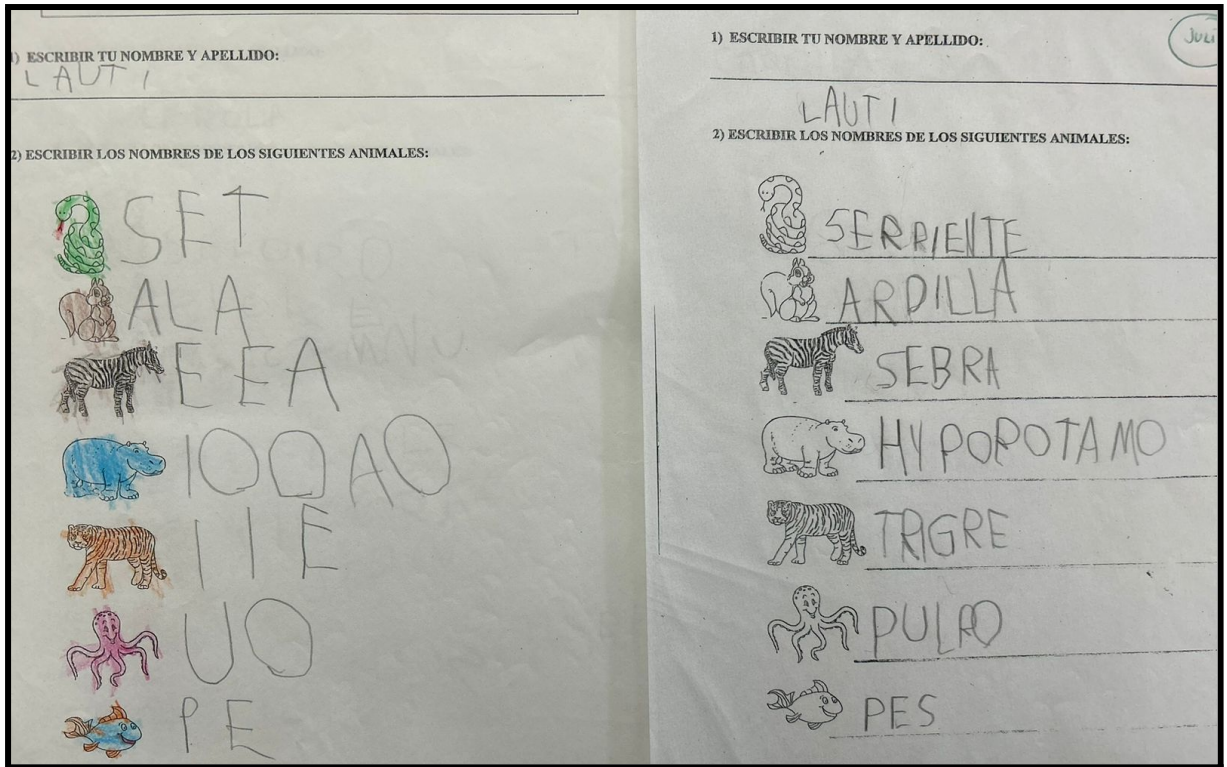 1) ESCRIBIR TU NOMBRE Y APELLIDO:
LAUTI
2) ESCRIBIR LOS NOMBRES DE LOS SIGUIENTES ANIMALES:
SET
ALA
EEA
IOOAO
IIE
UO
PE
JULI
1) ESCRIBIR TU NOMBRE Y APELLIDO:
LAUTI
2) ESCRIBIR LOS NOMBRES DE LOS SIGUIENTES ANIMALES:
SERPIENTE
ARDILLA
SEBRA
HYPOPOTAMO
TRIGRE
PULPO
PES